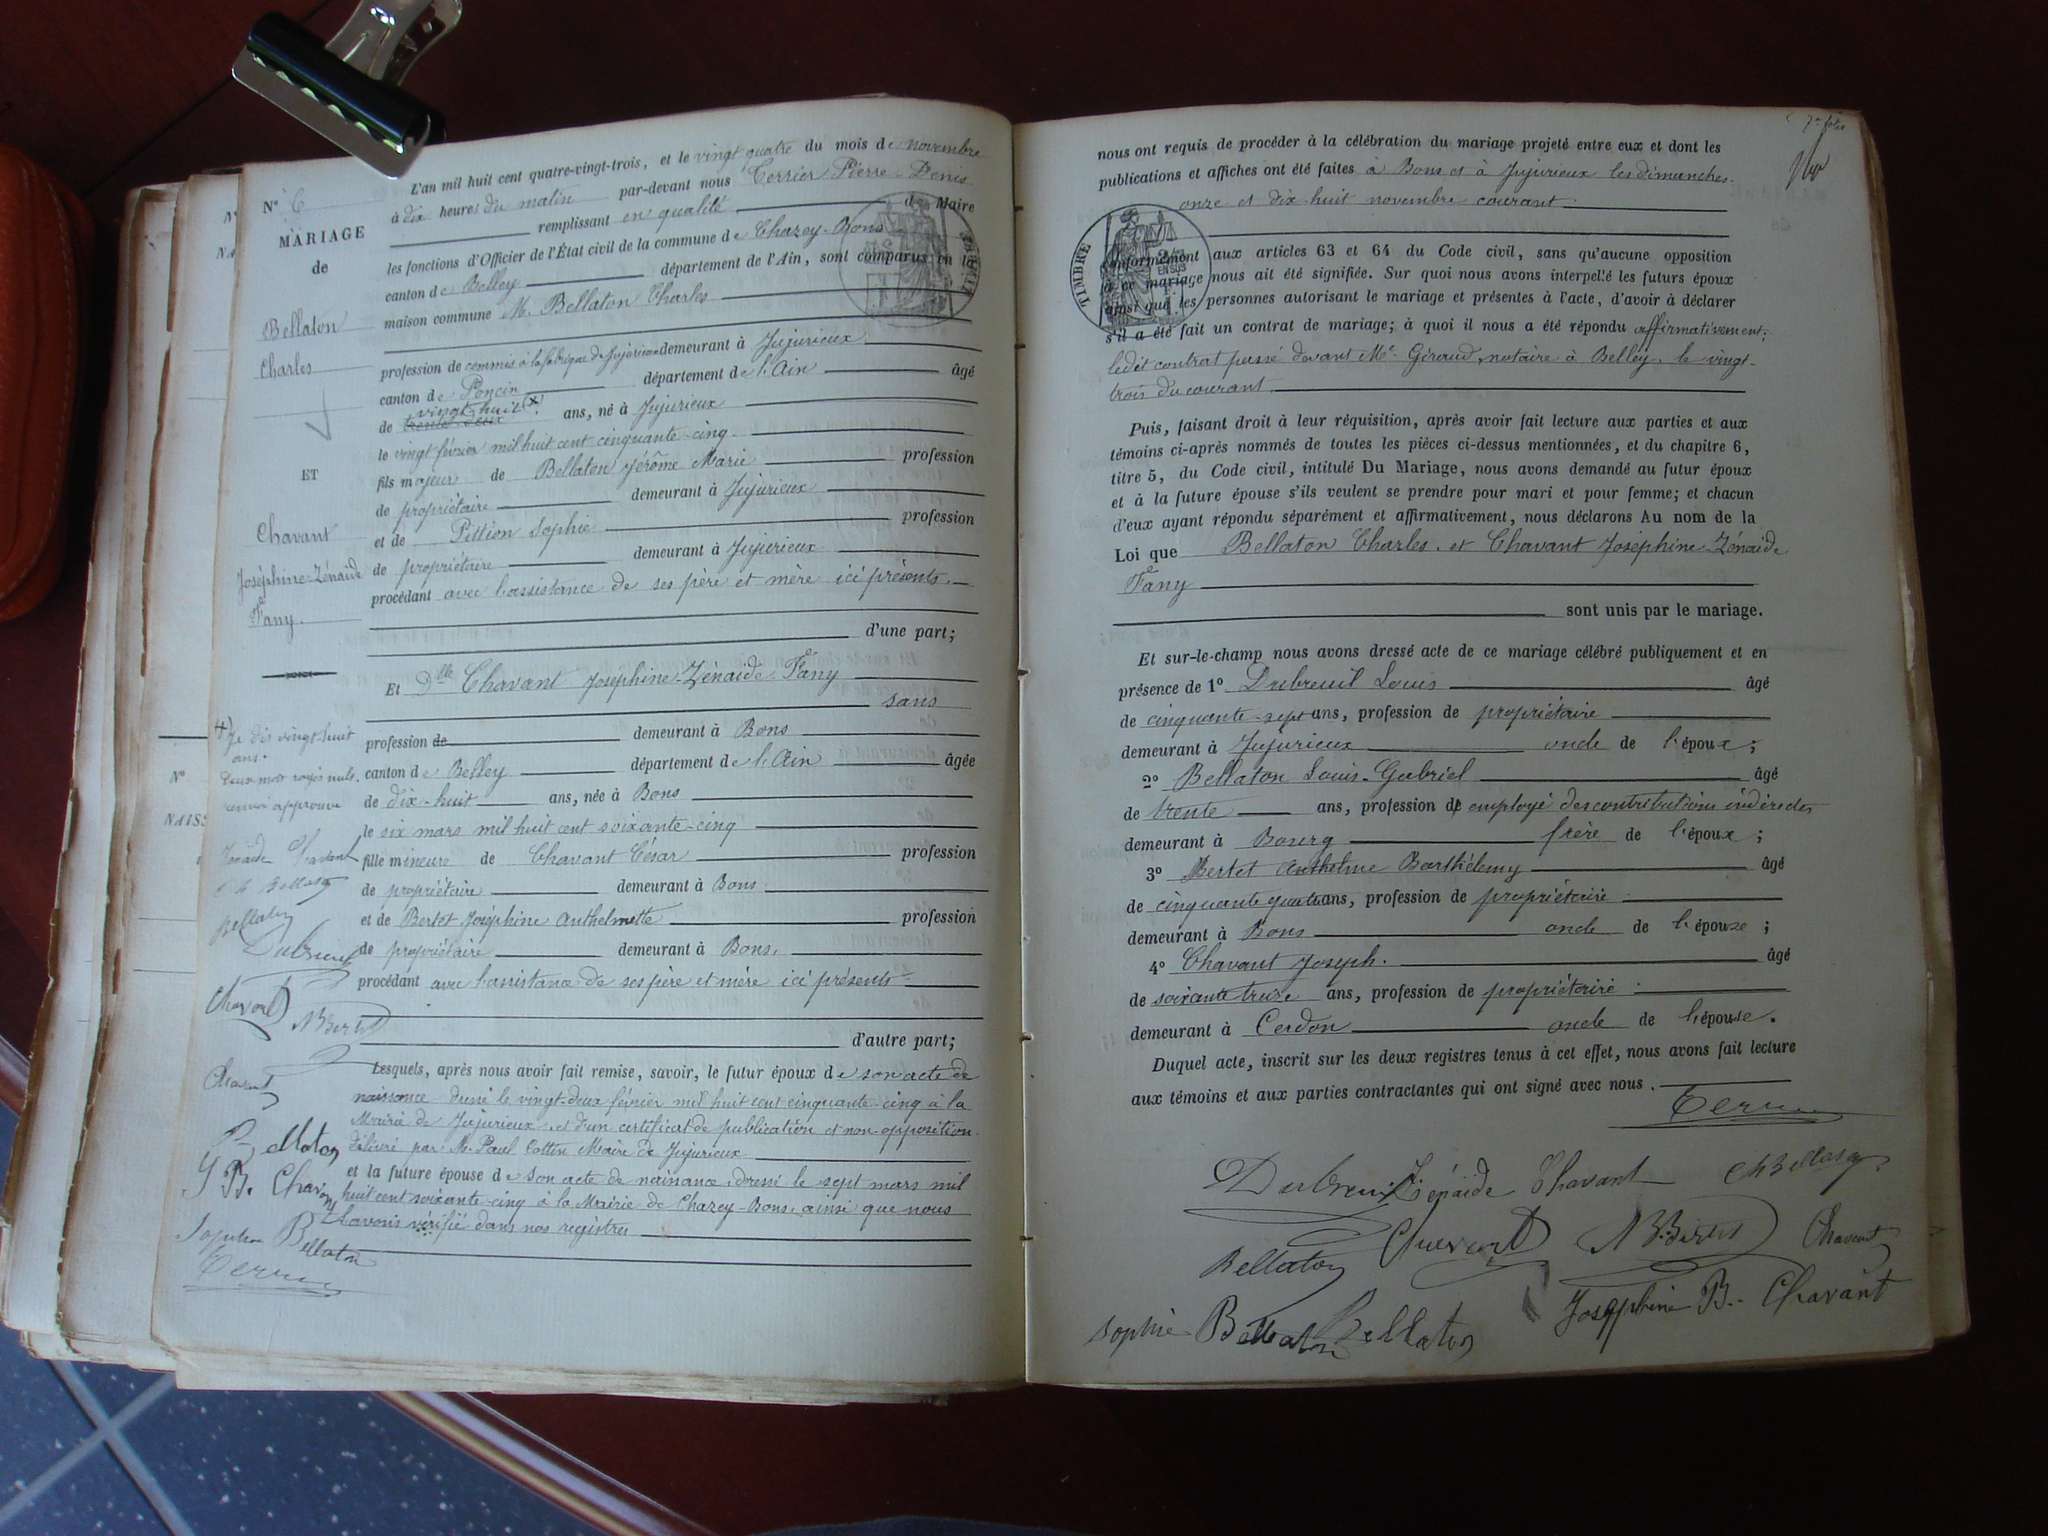 N° 6
MARIAGE
de
Bellaton
Charles
ET
Chavant
Joséphine-Zénaïde
Fany.
+) Je dis vingt-huit
ans.
Deux mots rayés nuls.
renvoi approuvé
Zénaïde Chavant
Ch Bellaton
Bellaton
Dubreuil
Chavant
AB Bertet
Chavant
Bellaton
J B. Chavant
Sophie Bellaton
Terrier
L'an mil huit cent quatre-vingt-trois, et le vingt quatre du mois de novembre
à dix heures du matin par-devant nous Terrier Pierre-Denis
remplissant en qualité de Maire
les fonctions d'Officier de l'État civil de la commune de Chazey-Bons
canton de Belley département de l'Ain, sont comparus en la
maison commune M. Bellaton Charles
profession de commis à la fabrique de Jujurieux demeurant à Jujurieux
canton de Poncin département de l'Ain âgé
vingt-huit (x)
de trente-deux ans, né à Jujurieux
le vingt février mil huit cent cinquante-cinq
fils majeur de Bellaton Jérôme Marie profession
de propriétaire demeurant à Jujurieux
et de Pittion Sophie profession
de propriétaire demeurant à Jujurieux
procédant avec l'assistance de ses père et mère ici présents.
d'une part;
Et Dlle Chavant Joséphine-Zénaïde Fany
sans
profession de demeurant à Bons
canton de Belley département de l'Ain âgée
de dix-huit ans, née à Bons
le six mars mil huit cent soixante-cinq
fille mineure de Chavant César profession
de propriétaire demeurant à Bons
et de Bertet Joséphine Anthelmette profession
de propriétaire demeurant à Bons.
procédant avec l'assistance de ses père et mère ici présents
d'autre part;
Lesquels, après nous avoir fait remise, savoir, le futur époux de son acte de
naissance dressé le vingt-deux février mil huit cent cinquante-cinq à la
Mairie de Jujurieux, et d'un certificat de publication et non-opposition
délivré par M. Paul Cottin Maire de Jujurieux
et la future épouse de son acte de naissance dressé le sept mars mil
huit cent soixante-cinq à la Mairie de Chazey-Bons, ainsi que nous
l'avons vérifié dans nos registres
nous ont requis de procéder à la célébration du mariage projeté entre eux et dont les
publications et affiches ont été faites à Bons et à Jujurieux les dimanches
onze et dix-huit novembre courant
TIMBRE
conformément aux articles 63 et 64 du Code civil, sans qu'aucune opposition
à ce mariage nous ait été signifiée. Sur quoi nous avons interpellé les futurs époux
ainsi que les personnes autorisant le mariage et présentes à l'acte, d'avoir à déclarer
s'il a été fait un contrat de mariage; à quoi il nous a été répondu affirmativement;
ledit contrat passé devant Me Géraud, notaire à Belley, le vingt-
trois du courant.
Puis, faisant droit à leur réquisition, après avoir fait lecture aux parties et aux
témoins ci-après nommés de toutes les pièces ci-dessus mentionnées, et du chapitre 6,
titre 5, du Code civil, intitulé Du Mariage, nous avons demandé au futur époux
et à la future épouse s'ils veulent se prendre pour mari et pour femme; et chacun
d'eux ayant répondu séparément et affirmativement, nous déclarons Au nom de la
Loi que Bellaton Charles. et Chavant Joséphine-Zénaïde
Fany
sont unis par le mariage.
Et sur-le-champ nous avons dressé acte de ce mariage célébré publiquement et en
présence de 1° Dubreuil Louis âgé
de cinquante-sept ans, profession de propriétaire
demeurant à Jujurieux oncle de l'époux;
2° Bellaton Louis-Gabriel âgé
de trente ans, profession de employé des contributions indirectes
demeurant à Bourg frère de l'époux;
3° Bertet Anthelme Barthélemy âgé
de cinquante quatre ans, profession de propriétaire
demeurant à Bons oncle de l'épouse;
4° Chavant Joseph. âgé
de soixante treize ans, profession de propriétaire
demeurant à Cerdon oncle de l'épouse.
Duquel acte, inscrit sur les deux registres tenus à cet effet, nous avons fait lecture
aux témoins et aux parties contractantes qui ont signé avec nous.
Terrier
Dubreuil Zénaïde Chavant Ch Bellaton
Bellaton Chavant AB Bertet Chavant
Sophie Bellaton Bellaton Joséphine B. Chavant